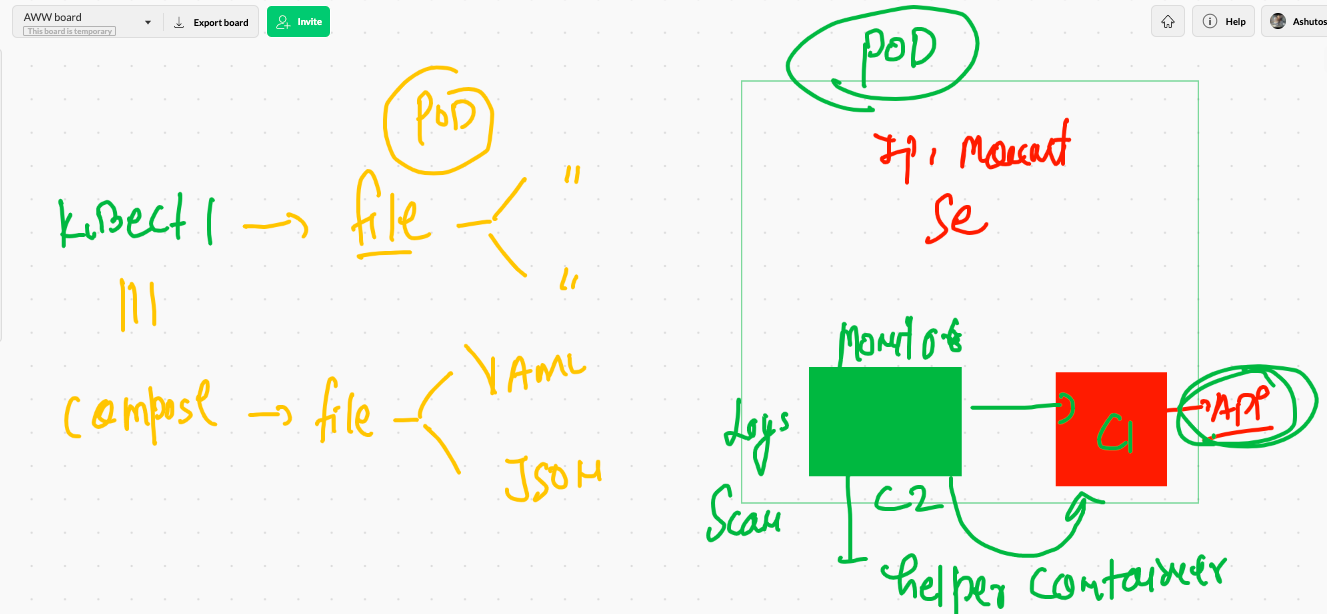 AWW board
This board is temporary
Export board
Invite
Help
Ashutos
POD
file
"
"
kuBectl
compose
file
YAML
JSON
POD
Ip, Mount
Se
Monitor
Logs
Scan
C2
C1
APP
helper container